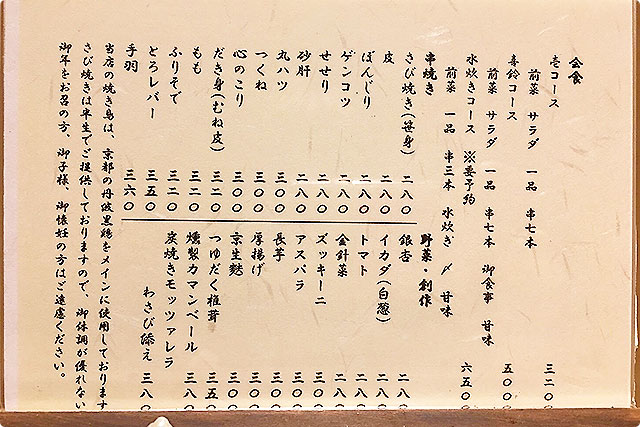 会食
壱コース 三二〇〇
前菜 サラダ 一品 串七本
喜鈴コース 五〇〇
前菜 サラダ 一品 串七本 御食事 甘味
水炊きコース ※要予約 六五〇
前菜 一品 串三本 水炊き 〆 甘味
串焼き
さび焼き(笹身) 二八〇
皮 二八〇
ぼんじり 二八〇
ゲンコツ 二八〇
せせり 二八〇
砂肝 二八〇
丸ハツ 三〇〇
つくね 三〇〇
心のこり 三〇〇
だき身(むね皮) 三二〇
もも 三二〇
ふりそで 三二〇
とろレバー 三五〇
手羽 三六〇
野菜・創作
銀杏 二八〇
イカダ(白葱) 二八〇
トマト 二八〇
金針菜 二八〇
ズッキーニ 三〇〇
アスパラ 三〇〇
長芋 三〇〇
厚揚げ 三〇〇
京生麩 三〇〇
つゆだく椎茸 三五〇
燻製カマンベール 三八〇
炭焼きモッツァレラ
わさび添え 三八〇
当店の焼き鳥は、京都の丹波黒鶏をメインに使用しております
さび焼きは半生でご提供しておりますので、御体調が優れない
御年をお召の方、御子様、御懐妊の方はご遠慮ください。